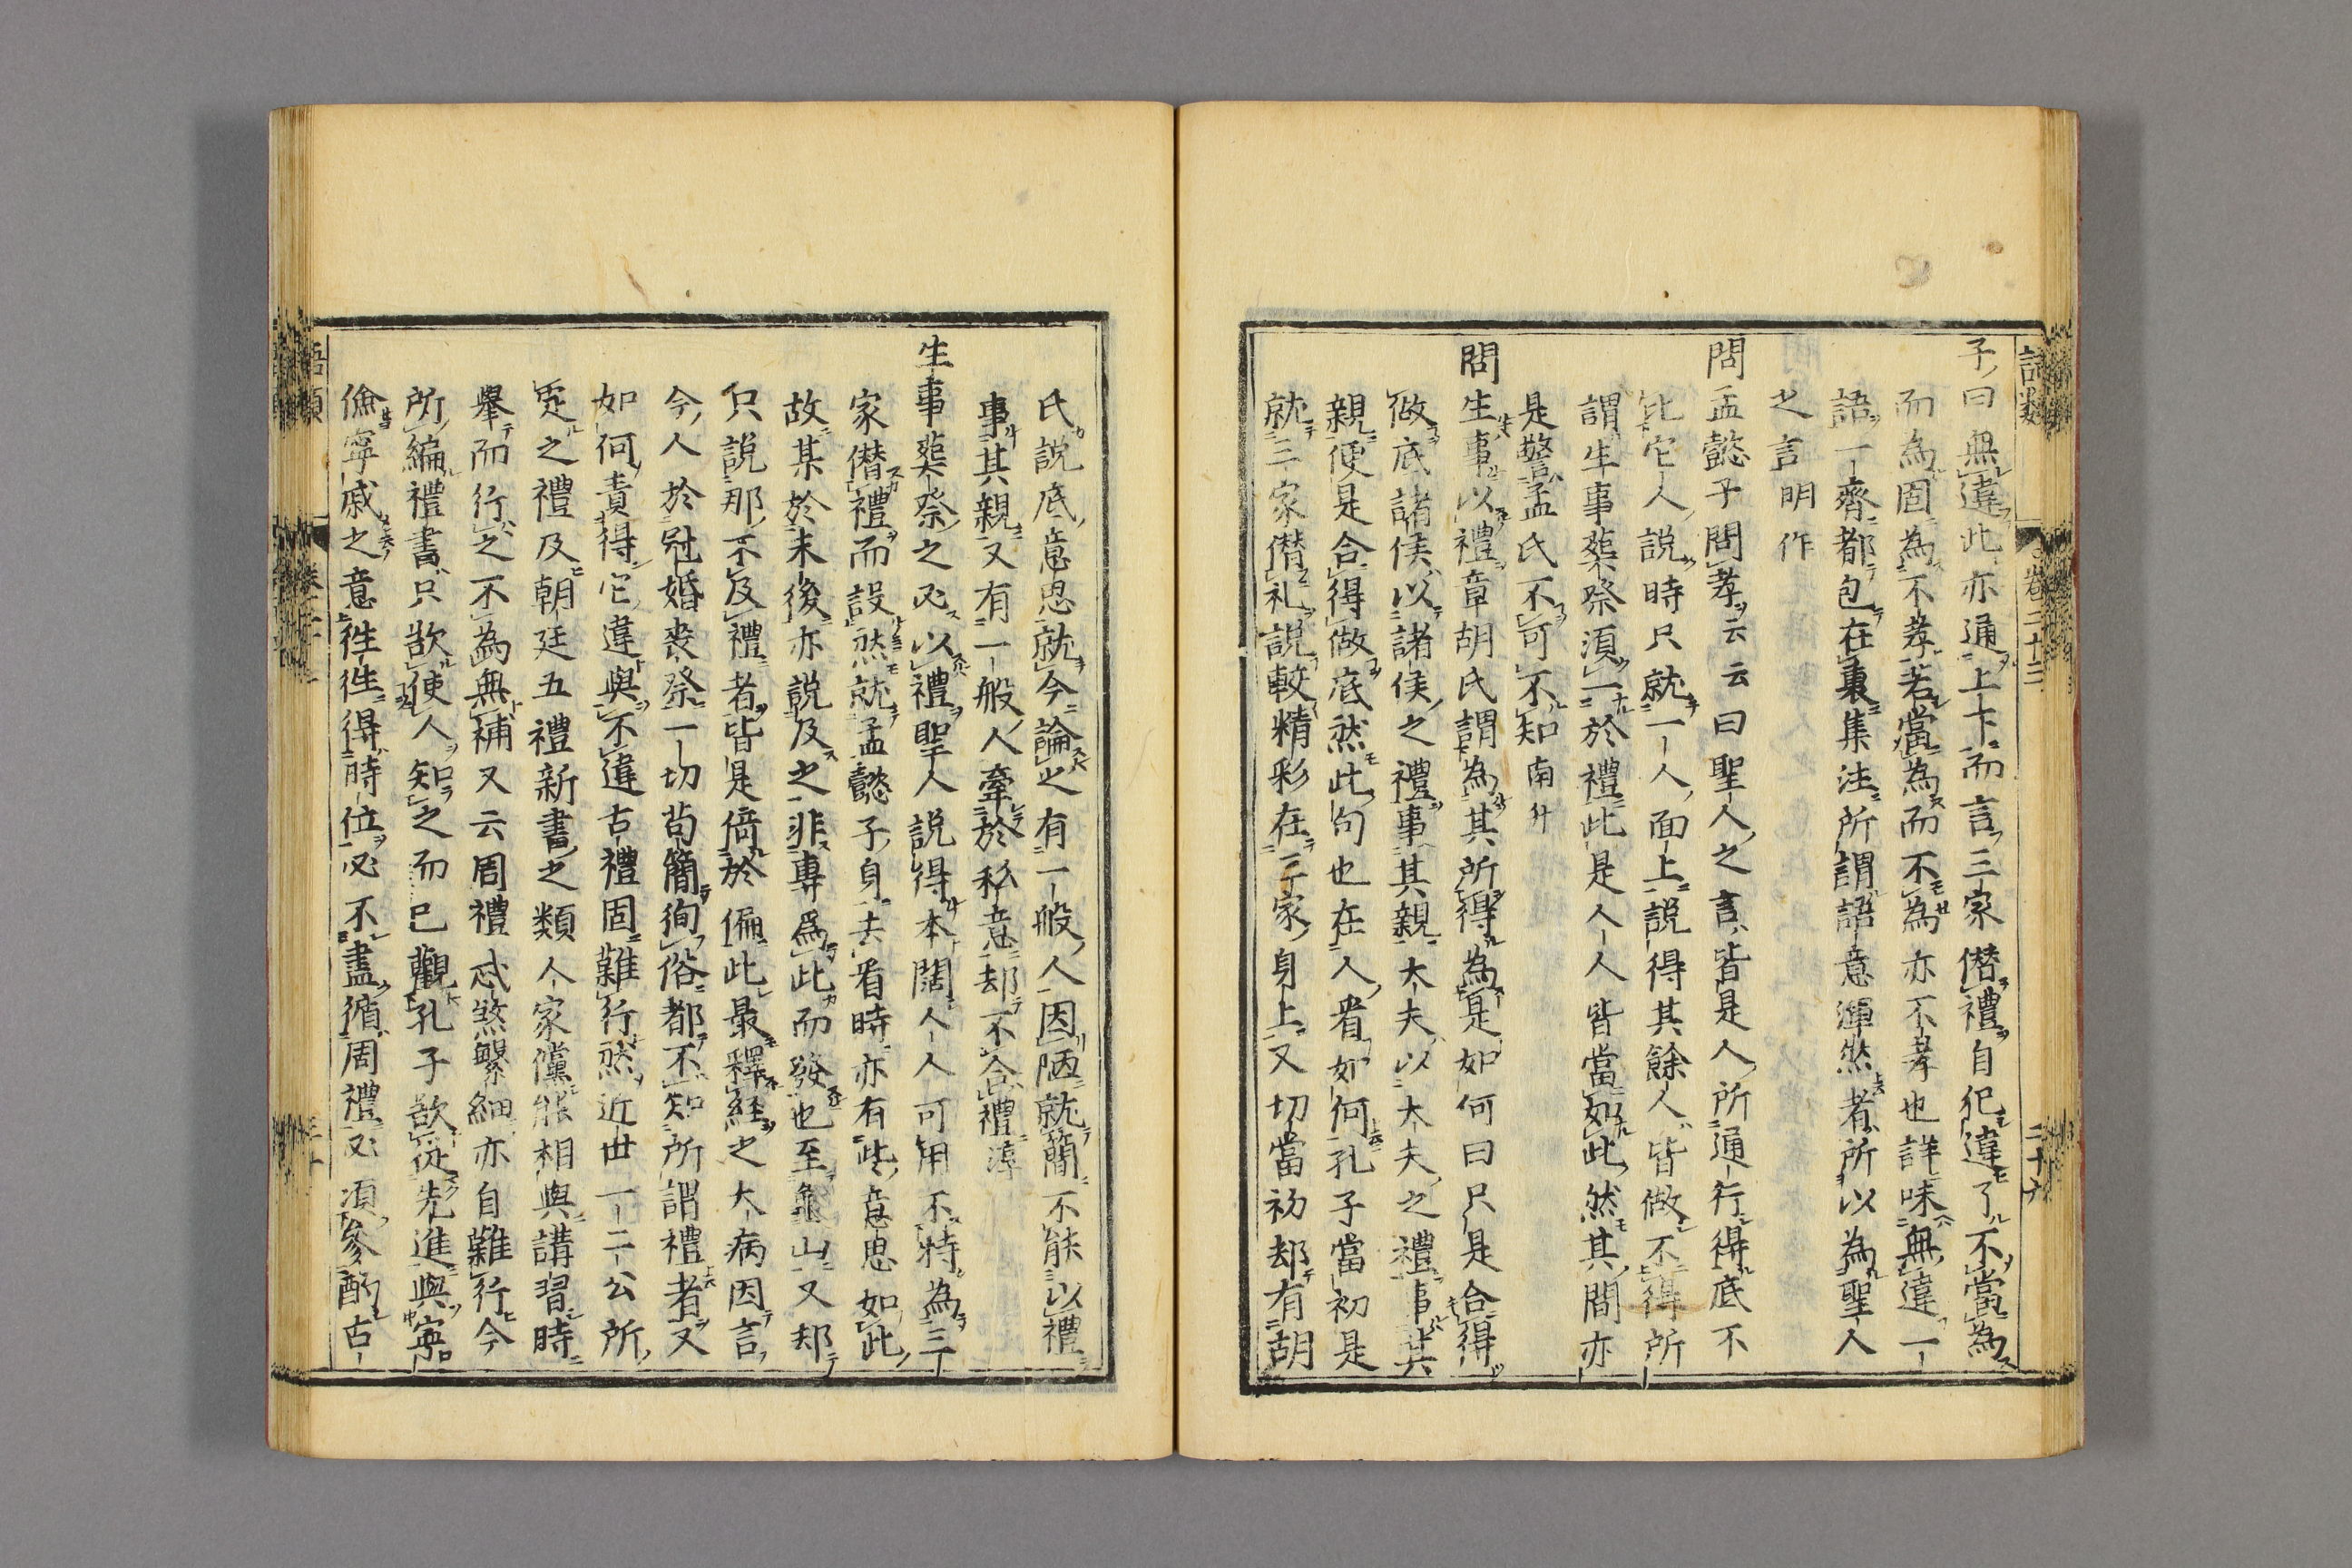 語類
卷二十三
二十六
子曰無違此亦通上下而言三家僭禮自犯違了不當為
而為固為不孝若當為而不為亦不孝也詳味無違一
語一齊都包在裏集注所謂語意渾然者所以為聖人
之言明作
問孟懿子問孝云云曰聖人之言皆是人所通行得底不
比它人說時只就一人面上說得其餘人皆做不得所
謂生事葬祭須一於禮此是人人皆當如此然其間亦
是警孟氏不可不知南升
問生事以禮章胡氏謂為其所得為是如何曰只是合得
做底諸侯以諸侯之禮事其親大夫以大夫之禮事其
親便是合得做底然此句也在人看如何孔子當初是
就三家僭礼說較精彩在三家身上又切當初却有胡
氏說底意思就今論之有一般人因陋就簡不能以禮
事其親又有一般人牽於私意却不合禮淳
生事葬祭之必以禮聖人說得本闊人人可用不特為三
家僭禮而設然就孟懿子身上看時亦有此意思如此
故某於末後亦說及之非專為此而發也至龜山又却
只說那不及禮者皆是倚於偏此最釋経之大病因言
今人於冠婚喪祭一切苟簡徇俗都不知所謂禮者又
如何責得它違與不違古禮固難行然近世一二公所
定之禮及朝廷五禮新書之類人家儻能相與講習時
舉而行之不為無補又云周禮忒煞繁細亦自難行今
所編禮書只欲使人知之而已觀孔子欲從先進與寧
儉寧戚之意徃徃得時位必不盡循周禮必須參酌古
語類